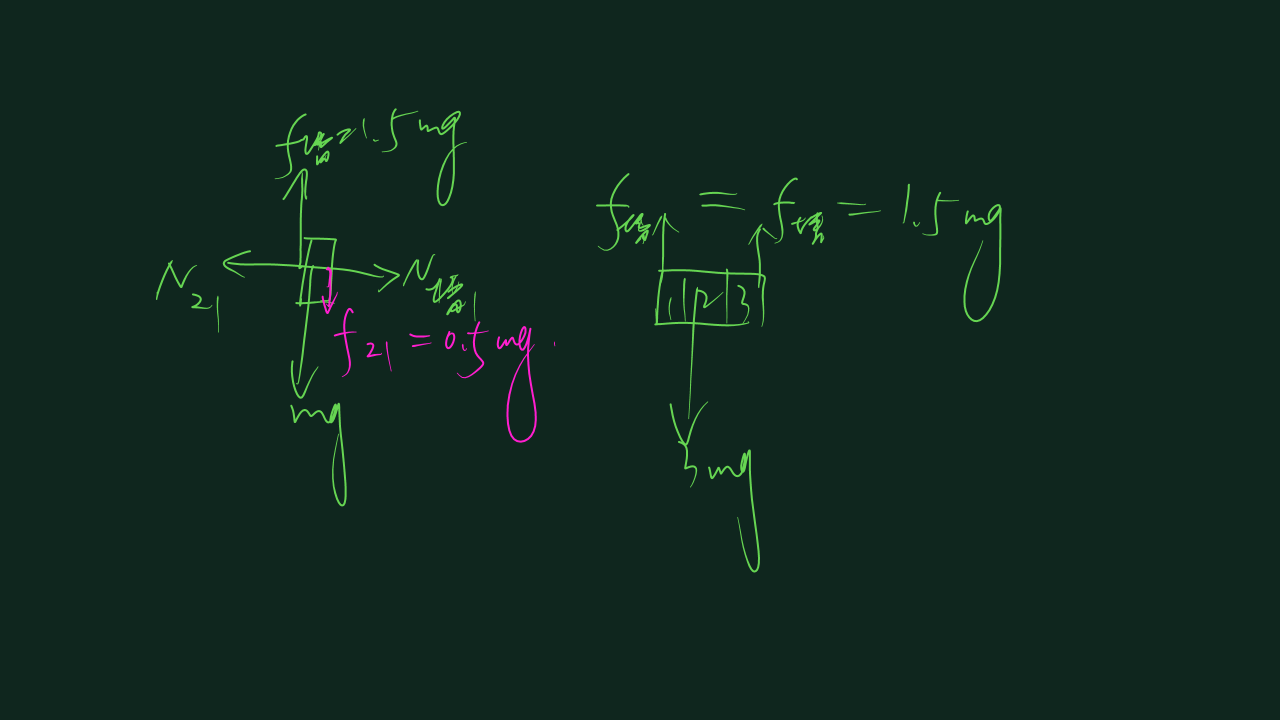 f = 1.5 mg
N21
N 1
f21 = 0.5 mg.
mg
f = f = 1.5 mg
1 2 3
3mg